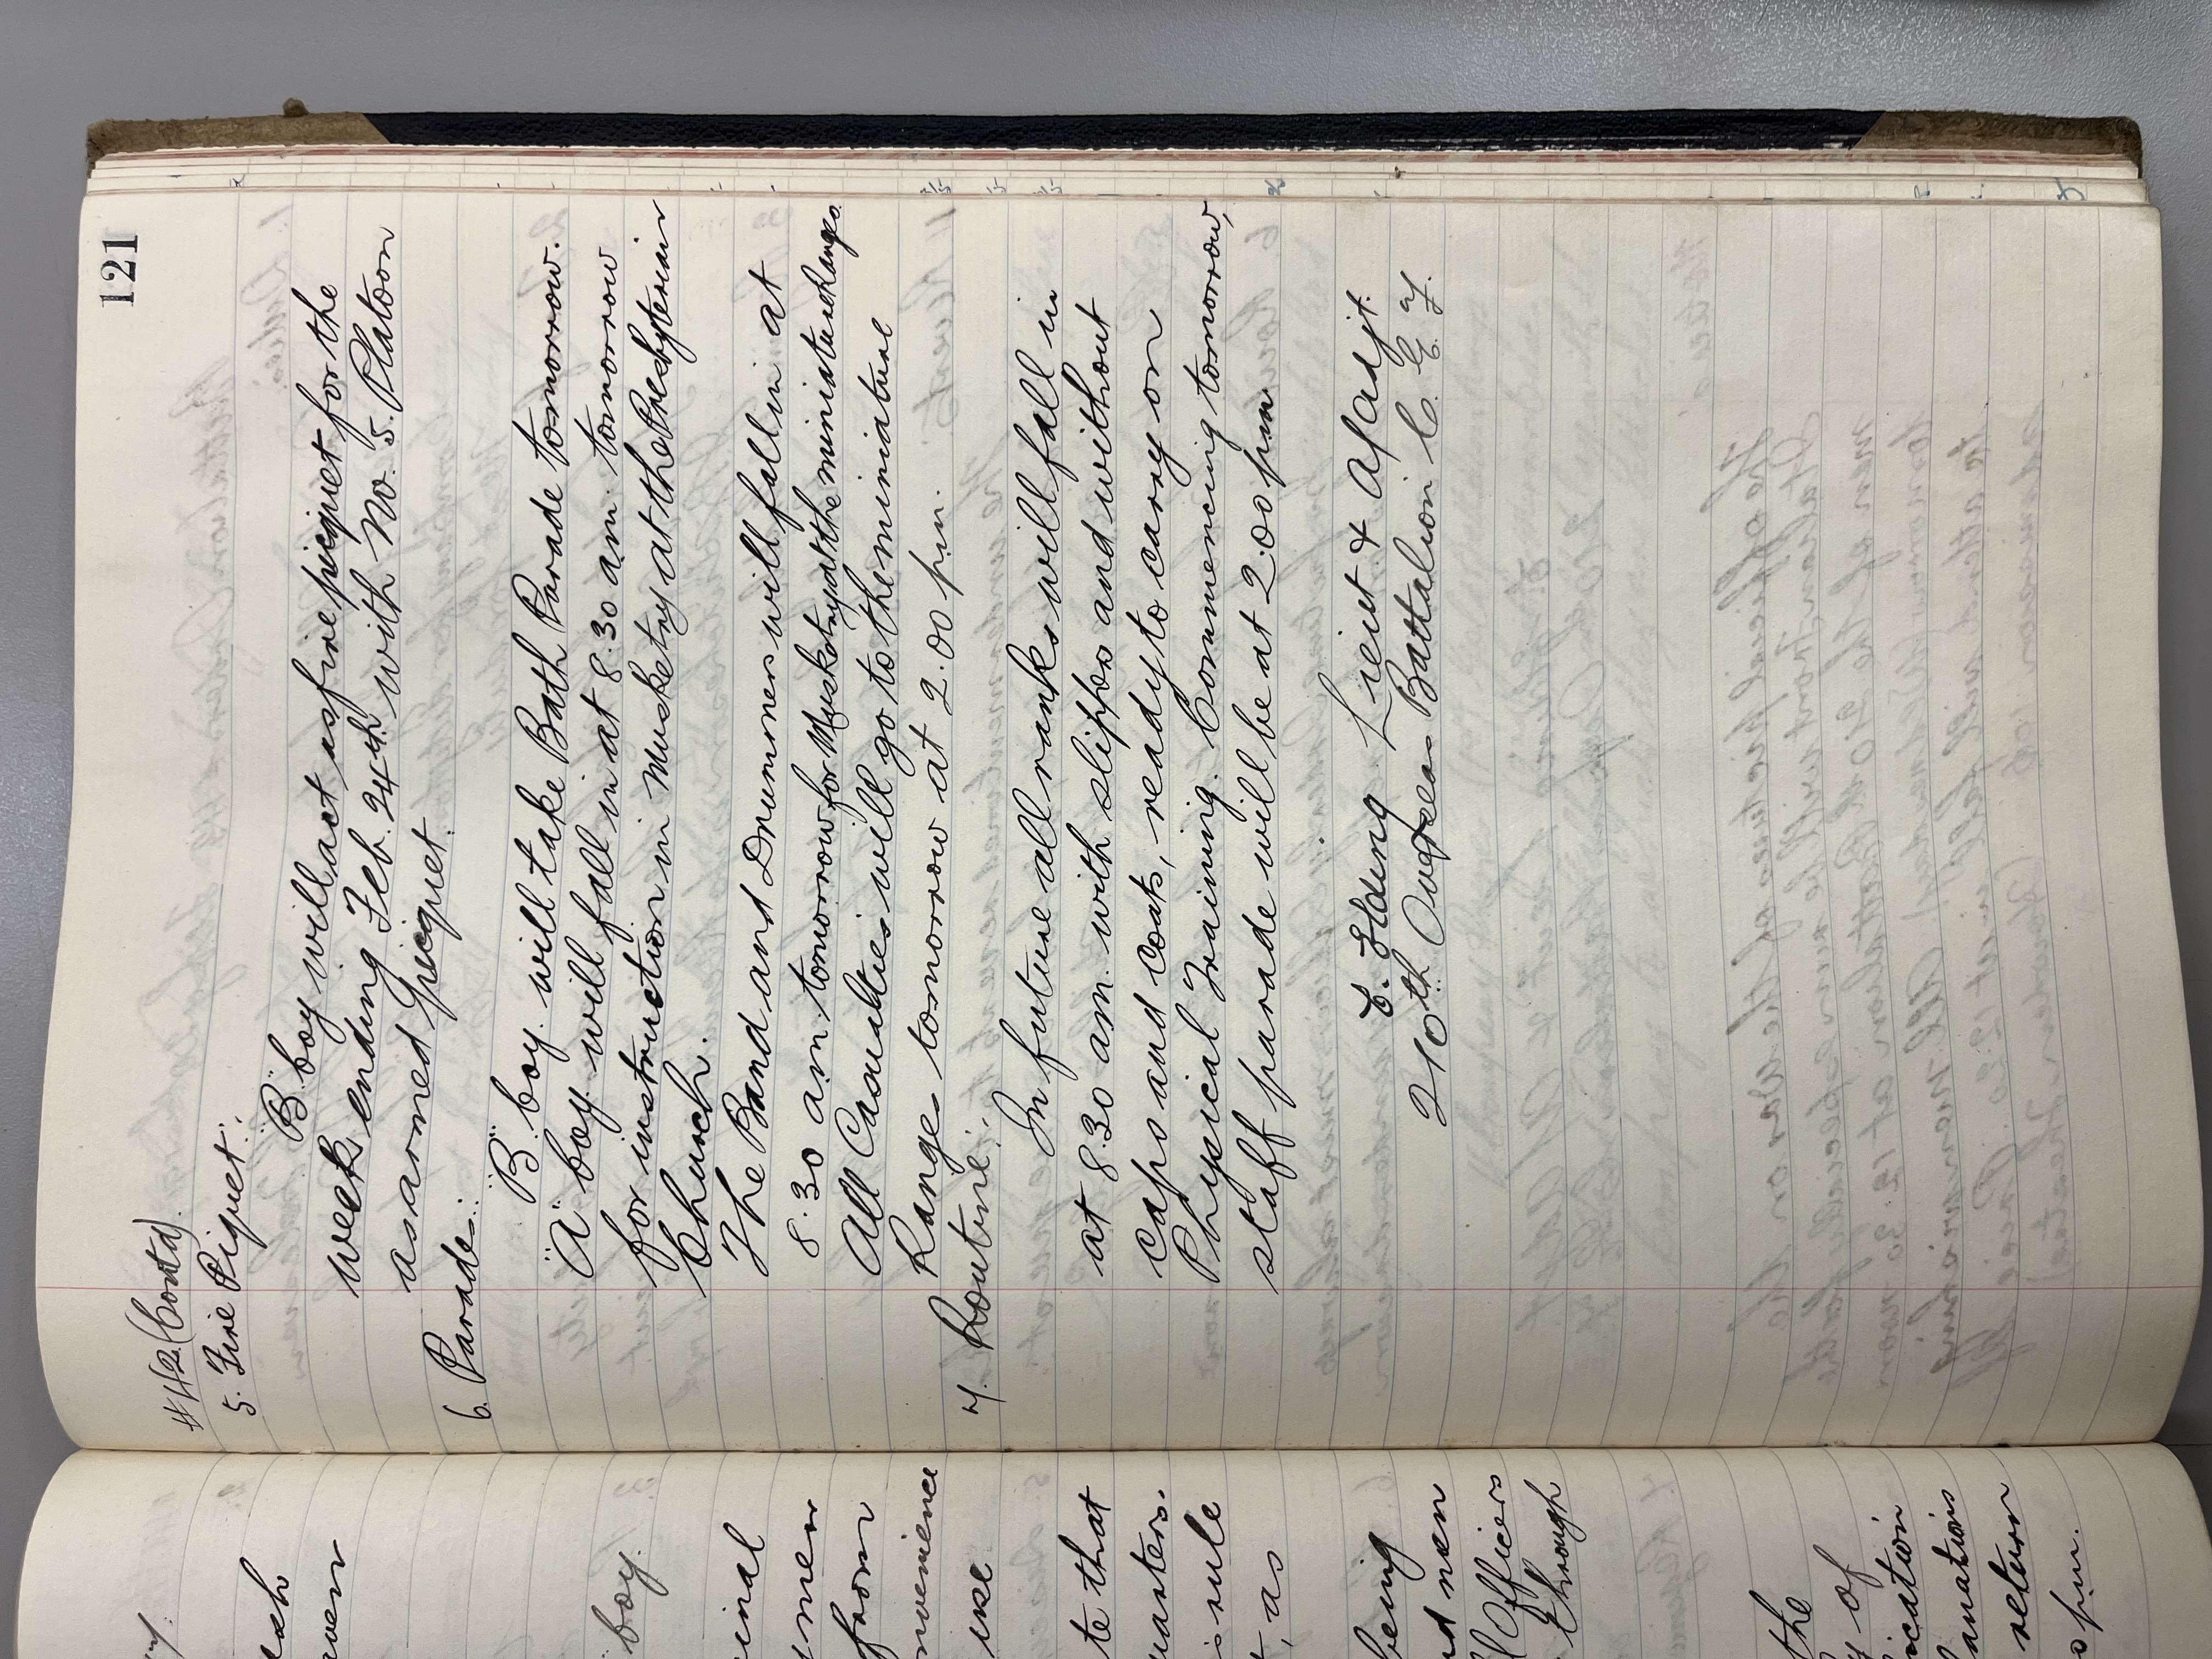 121
#42 (Contd).
5. Fire Piquet:.
"B" Coy will act as fire picquet for the
week ending Feb. 24th with No. 5. Platoon
as armed picquet.
6. Parades:.
"B" Coy. will take Bath Parade tomorrow.
"A" Coy will fall in at 8.30 am tomorrow
for instruction in Musketry at the Presbyterian
Church.
The Band and Drummers will fall in at
8.30 am tomorrow for Musketry at the miniature Range.
All Casualties will go to the miniature
Range tomorrow at 2.00 pm.
7. Routine:.
In future all ranks will fall in
at 8.30 am with slippers and without
caps and coats, ready to carry on
Physical Training. Commencing tomorrow,
staff parade will be at 2.00 pm
Lieut & A/adjt.
210th Overseas Battalion C. E. F.
boy.
men
from
te that
rule
, as
being
men
Officers
through
the
of
return
pm.